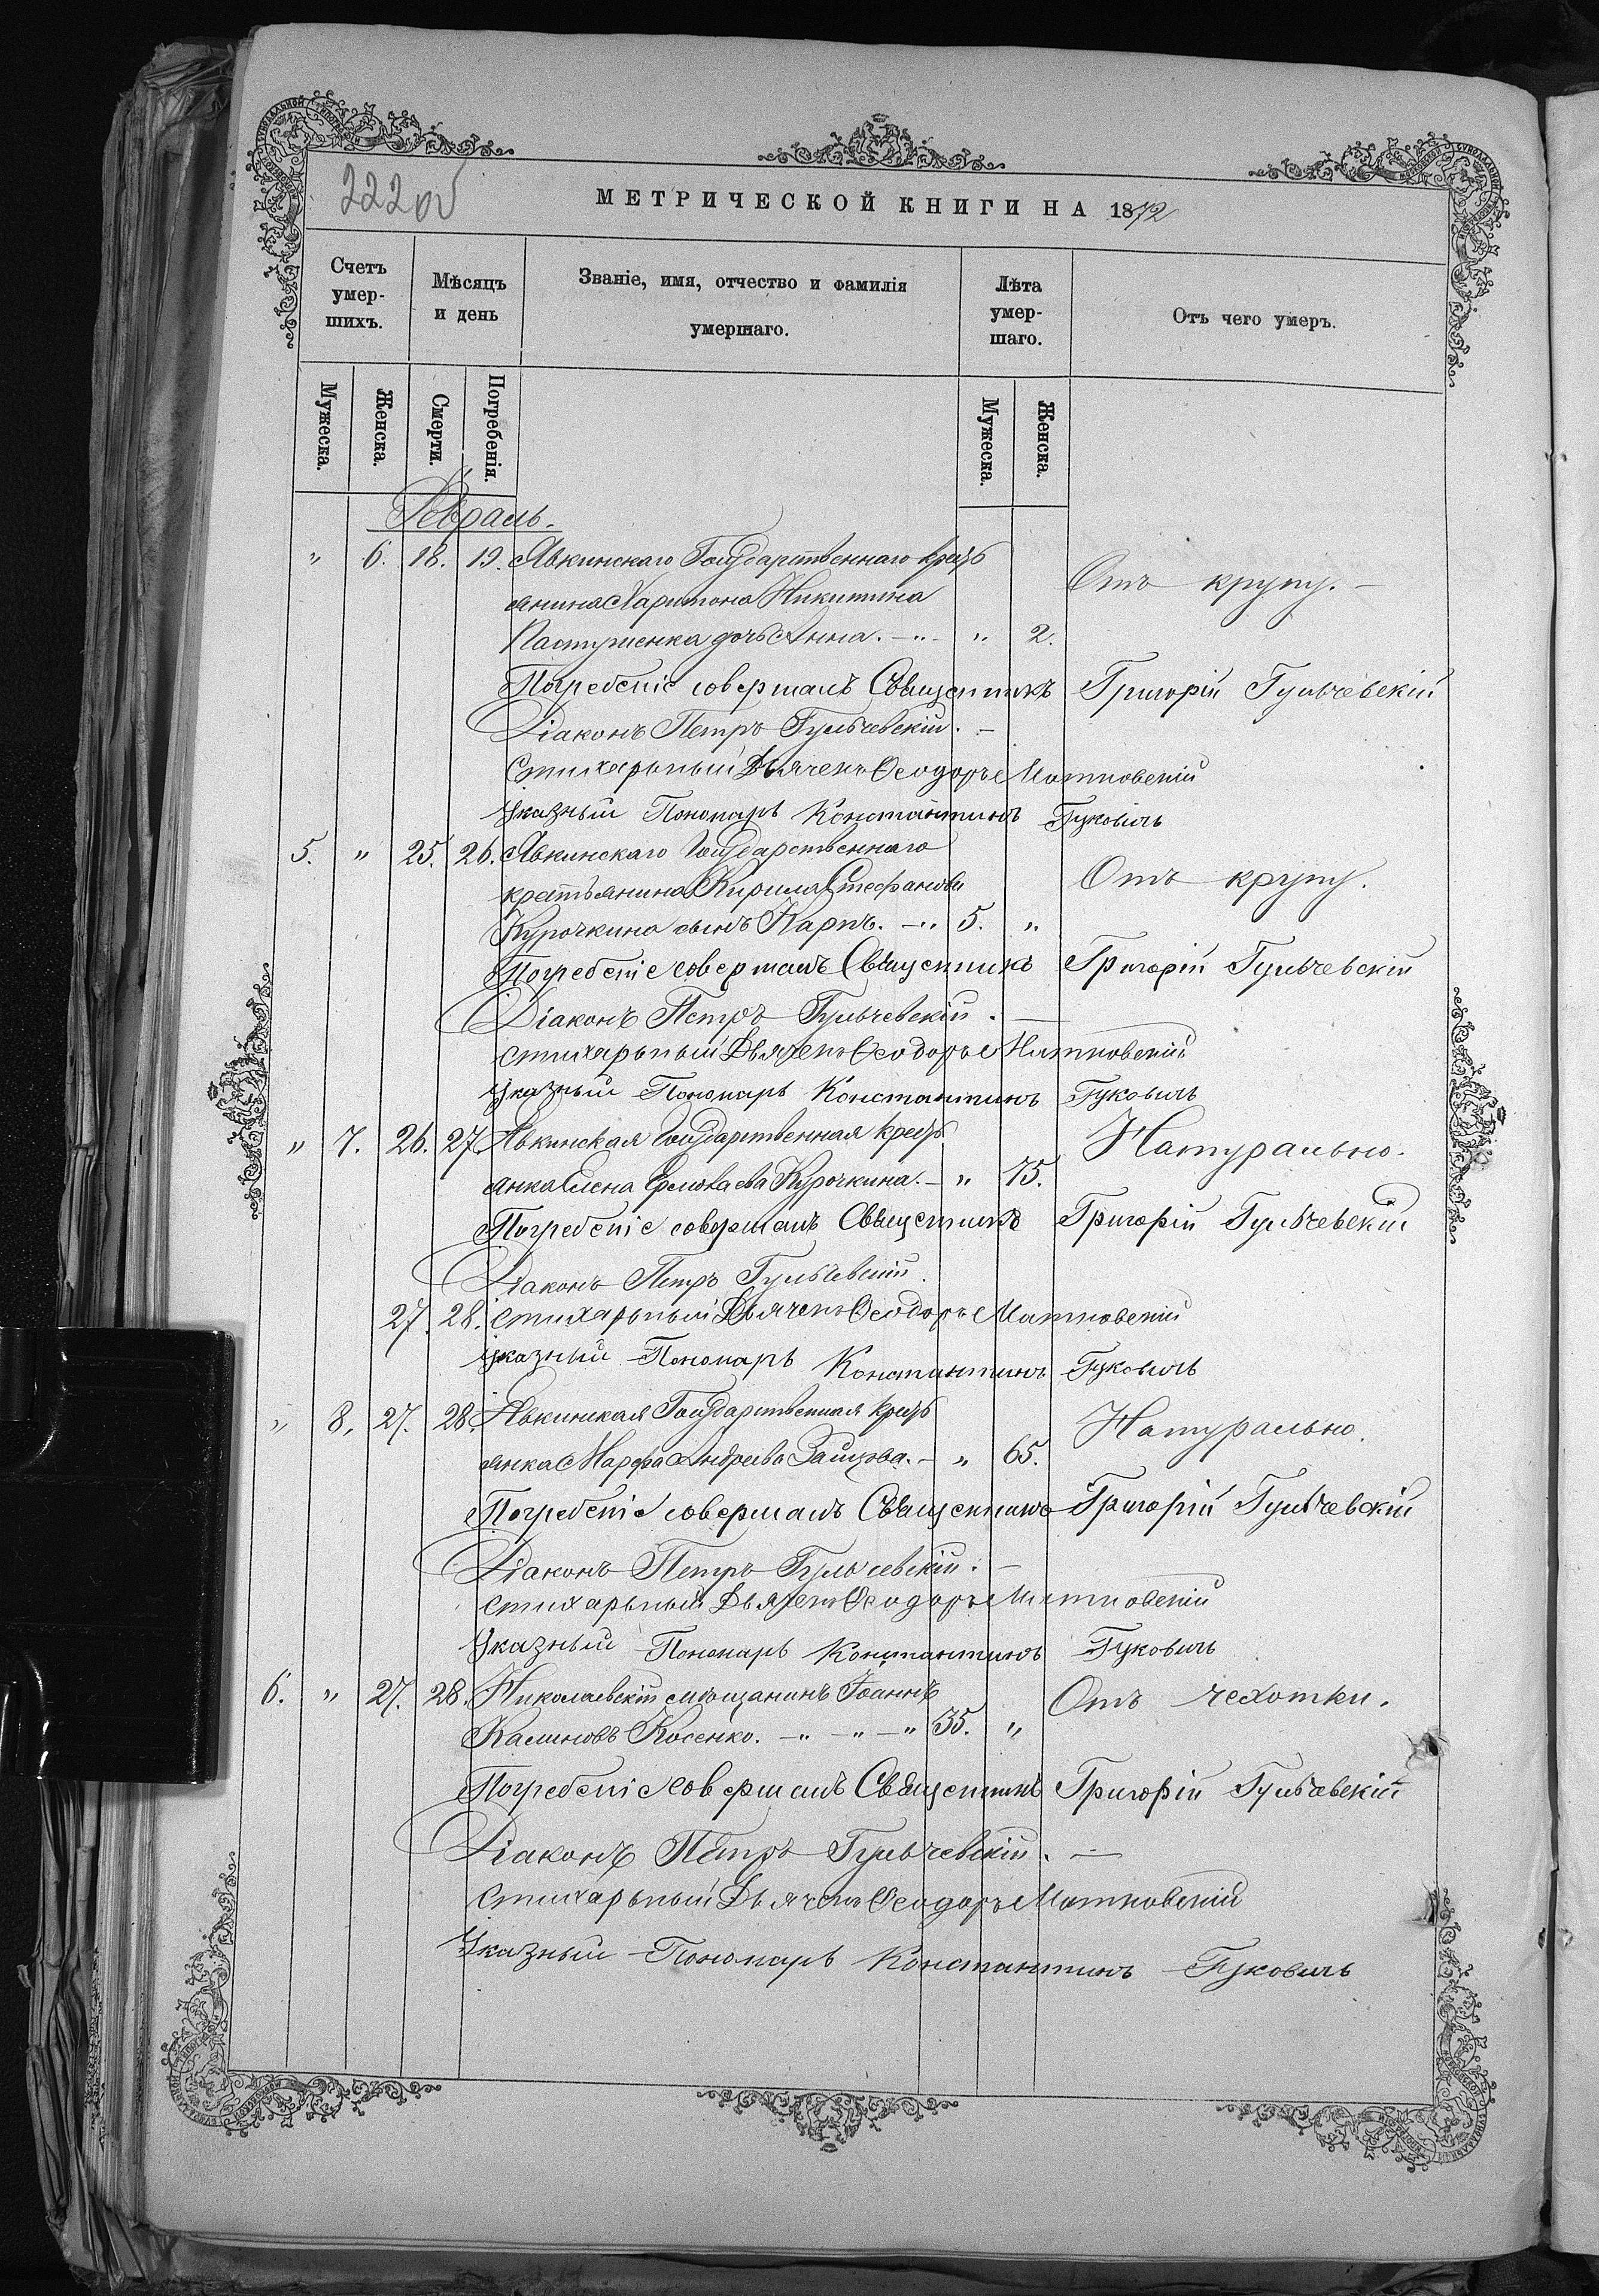 222об
МЕТРИЧЕСКОЙ КНИГИ НА 1872
Счетъ умер- шихъ.
Мѣсяцъ и день
Званіе, имя, отчество и фамилія умершаго.
Лѣта умер- шаго.
Отъ чего умеръ.
Мужеска. Женска. Смерти. Погребенія. Мужеска. Женска.
Февраль.
" 6. 18. 19. Явкинскаго Государственнаго крест
янина Харитона Никитина Отъ крупу.
Пастушенка дочь Анна. " 2.
Погребеніе совершалъ Священникъ Григорій Гульчевскій
Діаконъ Петръ Гульчевскій.
Стихарьный Дьячекъ Ѳеодоръ Матковскій
Указный Пономарь Константинъ Гуковичъ
5. " 25. 26. Явкинскаго Государственнаго
крестьянина Кирила Стефанова Отъ крупу.
Курочкина сынъ Карпъ. 5. "
Погребеніе совершалъ Священникъ Григорій Гульчевскій
Діаконъ Петръ Гульчевскій.
стихарьный Дьячекъ Ѳеодоръ Матковскій
Указный Пономарь Константинъ Гуковичъ
" 7. 26. 27. Явкинская Государственная крест Натурально.
янка Елена Ермолаева Курочкина. " 75.
Погребеніе совершалъ Священникъ Григорій Гульчевскій
Діаконъ Петръ Гульчевскій.
27. 28. стихарьный Дьячекъ Ѳеодоръ Матковскій
Указный Пономарь Константинъ Гуковичъ
" 8. 27. 28. Явкинская Государственная крест Натурально.
янка Марфа Андреева Зайцева. " 65.
Погребеніе совершалъ Священникъ Григорій Гульчевскій
Діаконъ Петръ Гульчевскій.
стихарьный Дьячекъ Ѳеодоръ Матковскій
Указный Пономарь Константинъ Гуковичъ
6. " 27. 28. Николаевскій мѣщанинъ Іоаннъ Отъ чехотки.
Калиновъ Косенко. 35. "
Погребеніе совершалъ Священникъ Григорій Гульчевскій
Діаконъ Петръ Гульчевскій.
Стихарьный Дьячекъ Ѳеодоръ Матковскій
Указный Пономарь Константинъ Гуковичъ